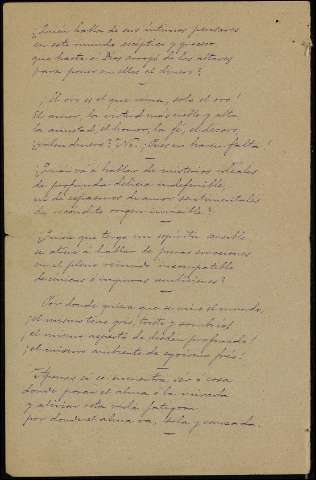 ¿Quién habla de sus íntimos pesares
en este mundo escéptico y grosero
que hasta a Dios arrojó de los altares
para poner en ellos al dinero?
¡El oro es el que reina, solo el oro!
El amor, la virtud más noble y alta
la amistad, el honor, la fe, el decoro,
¿valen dinero? ¿No? ¡Pues no hacen falta!
¿Quién va a hablar de misterios ideales
de profunda delicia indefinible,
ni de espasmos de amor sentimentales
de recóndito origen invisible?
¿Quién que tenga un espíritu sensible
se atreve a hablar de puras emociones
en el pleno reinado incompatible
de cínicas e impuras ambiciones?
Por donde quiera que se mire el mundo,
¡el mismo tono gris, triste y sombrío!
¡el mismo aspecto de desdén profundo!
¡el mismo ambiente de egoísmo frío!
Apenas si se encuentra ser o cosa
donde posar el alma o la mirada
y aliviar esta vida fatigosa
por donde el alma va, sola y cansada.